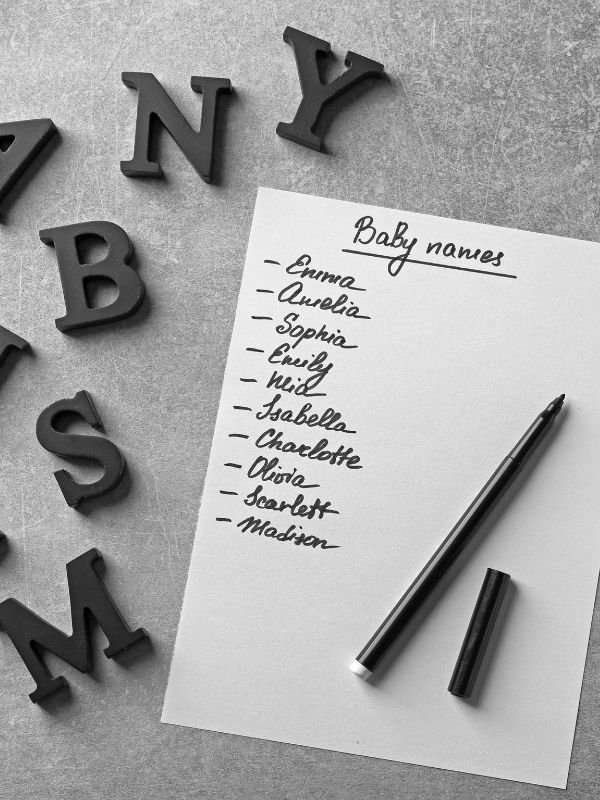 A
N
Y
B
S
M
Baby names
- Emma
- Amelia
- Sophia
- Emily
- Mia
- Isabella
- Charlotte
- Olivia
- Scarlett
- Madison